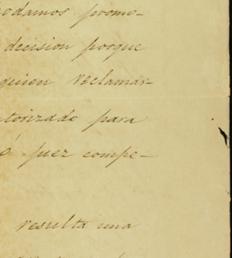 podamos promo-
decision porque
quien reclamar-
torizado para
ó juez compe-
resulta una